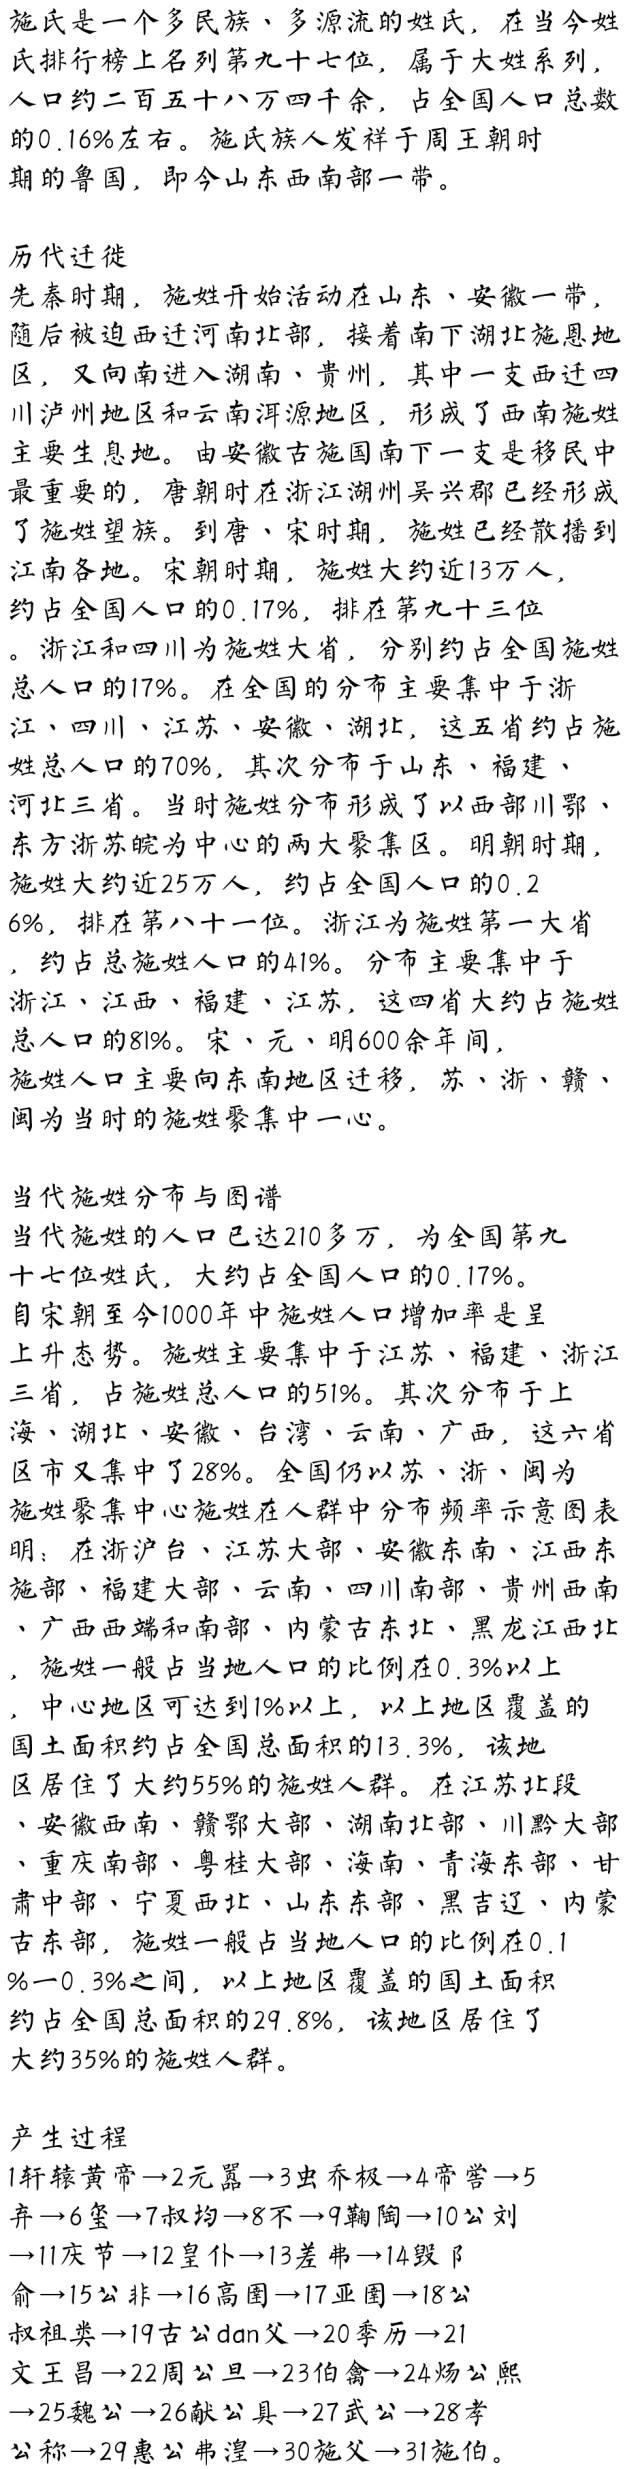 施氏是一个多民族、多源流的姓氏，在当今姓
氏排行榜上名列第九十七位，属于大姓系列，
人口约二百五十八万四千余，占全国人口总数
的0.16%左右。施氏族人发祥于周王朝时
期的鲁国，即今山东西南部一带。

历代迁徙
先秦时期，施姓开始活动在山东、安徽一带，
随后被迫西迁河南北部，接着南下湖北施恩地
区，又向南进入湖南、贵州，其中一支西迁四
川泸州地区和云南洱源地区，形成了西南施姓
主要生息地。由安徽古施国南下一支是移民中
最重要的，唐朝时在浙江湖州吴兴郡已经形成
了施姓望族。到唐、宋时期，施姓已经散播到
江南各地。宋朝时期，施姓大约近13万人，
约占全国人口的0.17%，排在第九十三位
。浙江和四川为施姓大省，分别约占全国施姓
总人口的17%。在全国的分布主要集中于浙
江、四川、江苏、安徽、湖北，这五省约占施
姓总人口的70%，其次分布于山东、福建、
河北三省。当时施姓分布形成了以西部川鄂、
东方浙苏皖为中心的两大聚集区。明朝时期，
施姓大约近25万人，约占全国人口的0.2
6%，排在第八十一位。浙江为施姓第一大省
，约占总施姓人口的41%。分布主要集中于
浙江、江西、福建、江苏，这四省大约占施姓
总人口的81%。宋、元、明600余年间，
施姓人口主要向东南地区迁移，苏、浙、赣、
闽为当时的施姓聚集中一心。

当代施姓分布与图谱
当代施姓的人口已达210多万，为全国第九
十七位姓氏，大约占全国人口的0.17%。
自宋朝至今1000年中施姓人口增加率是呈
上升态势。施姓主要集中于江苏、福建、浙江
三省，占施姓总人口的51%。其次分布于上
海、湖北、安徽、台湾、云南、广西，这六省
区市又集中了28%。全国仍以苏、浙、闽为
施姓聚集中心施姓在人群中分布频率示意图表
明：在浙沪台、江苏大部、安徽东南、江西东
施部、福建大部、云南、四川南部、贵州西南
、广西西端和南部、内蒙古东北、黑龙江西北
，施姓一般占当地人口的比例在0.3%以上
，中心地区可达到1%以上，以上地区覆盖的
国土面积约占全国总面积的13.3%，该地
区居住了大约55%的施姓人群。在江苏北段
、安徽西南、赣鄂大部、湖南北部、川黔大部
、重庆南部、粤桂大部、海南、青海东部、甘
肃中部、宁夏西北、山东东部、黑吉辽、内蒙
古东部，施姓一般占当地人口的比例在0.1
%一0.3%之间，以上地区覆盖的国土面积
约占全国总面积的29.8%，该地区居住了
大约35%的施姓人群。

产生过程
1轩辕黄帝→2元嚣→3虫乔极→4帝喾→5
弃→6玺→7叔均→8不→9鞠陶→10公刘
→11庆节→12皇仆→13差弗→14毁阝
俞→15公非→16高圉→17亚圉→18公
叔祖类→19古公dan父→20季历→21
文王昌→22周公旦→23伯禽→24炀公熙
→25魏公→26献公具→27武公→28孝
公称→29惠公弗湟→30施父→31施伯。